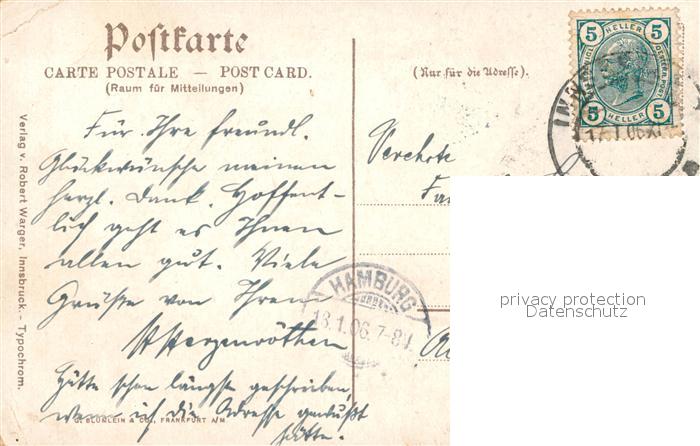 Postkarte
CARTE POSTALE — POST CARD.
(Raum für Mitteilungen)
Für Ihre freundl.
Glückwünsche meinen
herzl. Dank. Hoffent-
lich geht es Ihnen
allen gut. Viele
Grüße von Ihrem
Hätte schon längst geschrieben,
wenn ich die Adresse gewußt
hätte.
Verlag v. Robert Warger, Innsbruck. - Typochrom.
BLÜMLEIN & CO., FRANKFURT A/M
(Nur für die Adresse).
5 HELLER 5
5 HELLER 5
INN
17.1.06
Verehrte
Fa
HAMBURG
18.1.06.7-8
privacy protection
Datenschutz